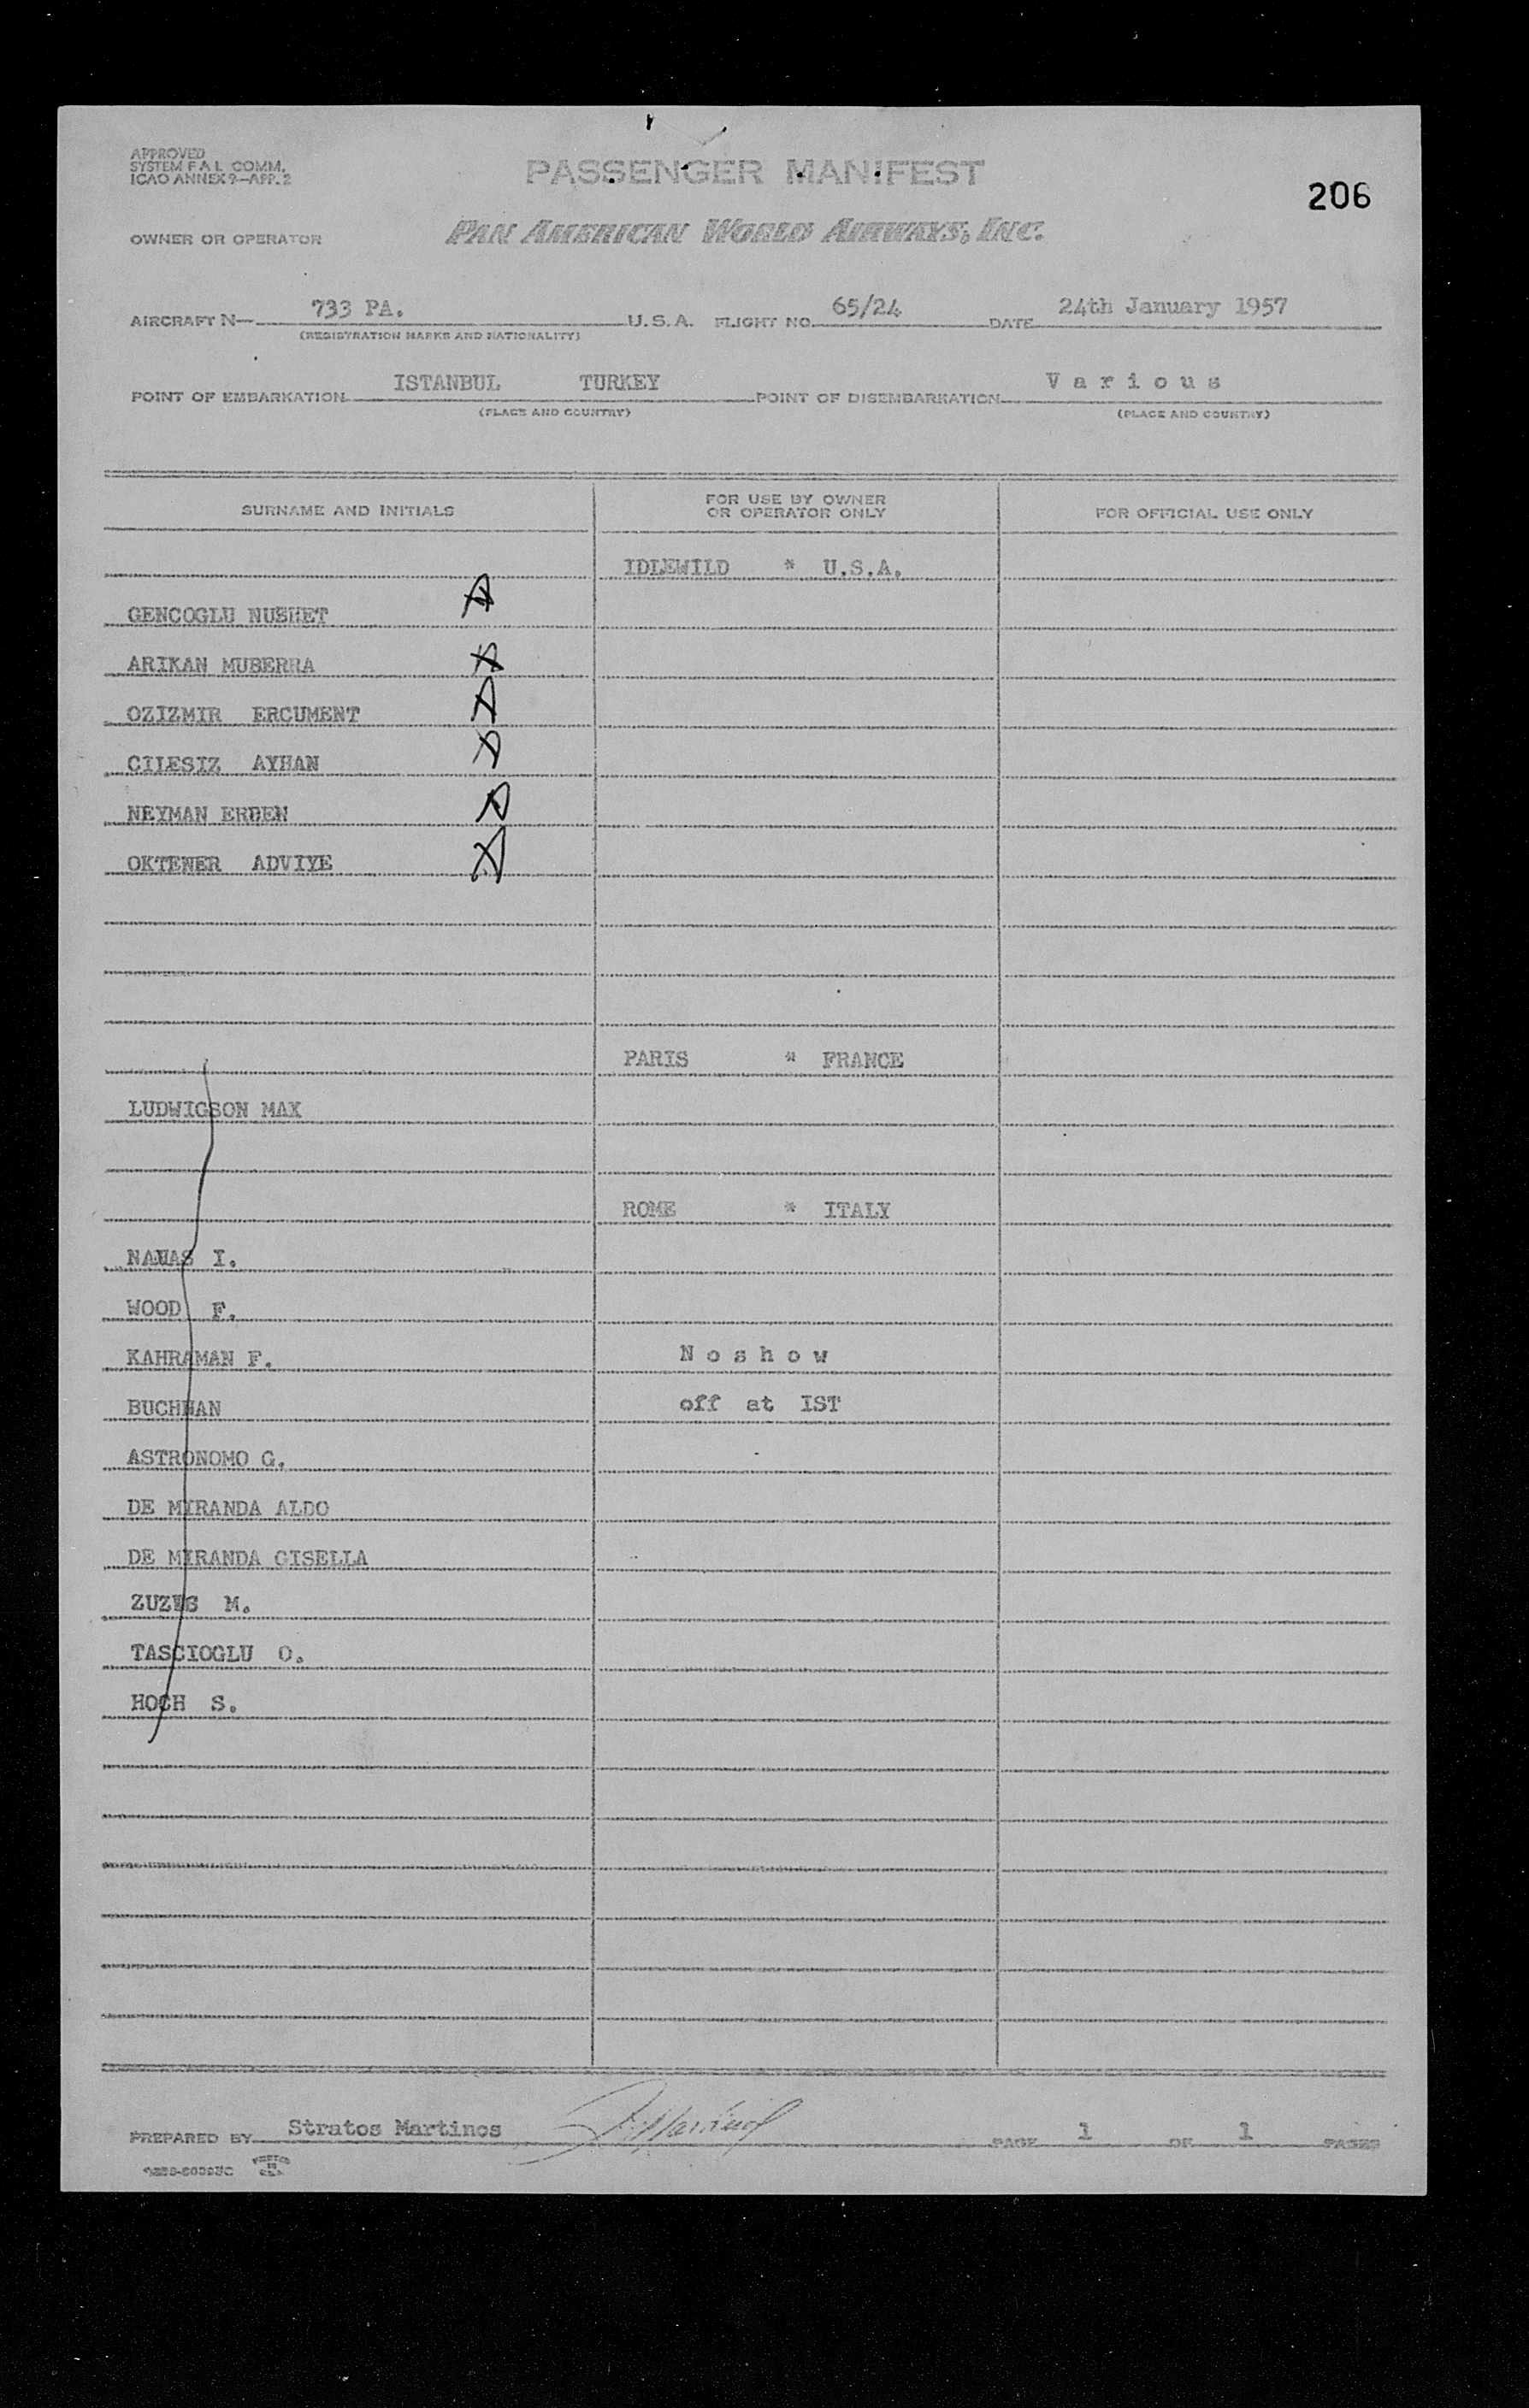 APPROVED
SYSTEM F A L COMM.
ICAO ANNEX 9—APP. 2
PASSENGER MANIFEST
206
OWNER OR OPERATOR PAN AMERICAN WORLD AIRWAYS, INC.
AIRCRAFT N— 733 PA. U.S.A. FLIGHT NO. 65/24 DATE 24th January 1957
(REGISTRATION MARKS AND NATIONALITY)
POINT OF EMBARKATION ISTANBUL TURKEY POINT OF DISEMBARKATION Various
(PLACE AND COUNTRY) (PLACE AND COUNTRY)
SURNAME AND INITIALS FOR USE BY OWNER OR OPERATOR ONLY FOR OFFICIAL USE ONLY
IDLEWILD * U.S.A.
GENCOGLU NUSHET
ARIKAN MUBERRA
OZIZMIR ERCUMENT
CILESIZ AYHAN
NEYMAN ERDEN
OKTENER ADVIYE
PARIS * FRANCE
LUDWIGSON MAX
ROME * ITALY
NAHAS I.
WOOD F.
KAHRAMAN F. Noshow
BUCHHAN off at IST
ASTRONOMO G.
DE MIRANDA ALDO
DE MIRANDA GISELLA
ZUZES M.
TASCIOGLU O.
HOCH S.
PREPARED BY Stratos Martinos PAGE 1 OF 1 PAGES